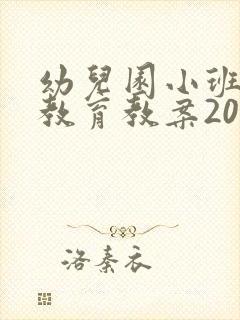 幼兒園小班
教育教案20
洛秦衣